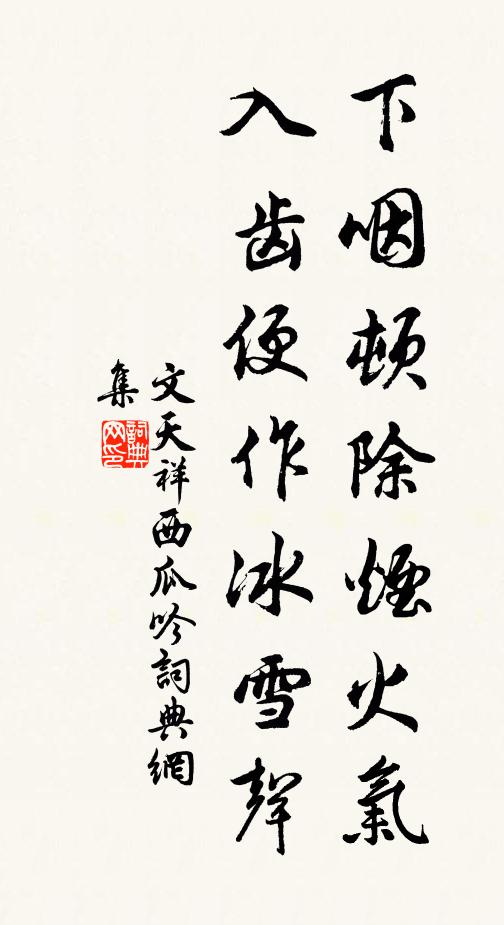 下咽頓除煙火氣
入齿便作冰雪聲
文天祥西瓜吟詞典網
集
詞典网印